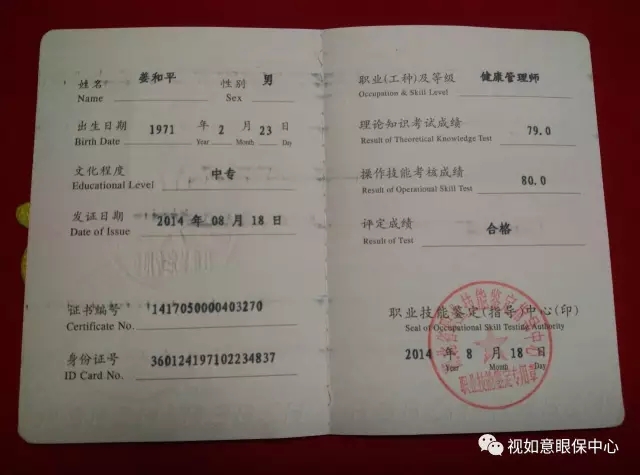 姓名 姜和平 性别 男
Name Sex
出生日期 1971 年 2 月 23 日
Birth Date Year Month Day
文化程度 中专
Educational Level
发证日期 2014 年 08 月 18 日
Date of Issue
证书编号 1417050000403270
Certificate No.
身份证号 360124197102234837
ID Card No.
职业(工种)及等级 健康管理师
Occupation & Skill Level
理论知识考试成绩 79.0
Result of Theoretical Knowledge Test
操作技能考核成绩 80.0
Result of Operational Skill Test
评定成绩 合格
Result of Test
职业技能鉴定(指导)中心(印)
Seal of Occupational Skill Testing Authority
2014 年 8 月 18 日
Year Month Day
职业技能鉴定专用章
视如意眼保中心